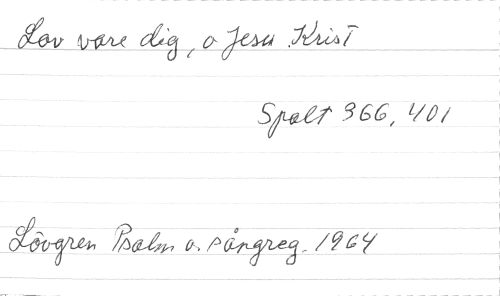 Lov vare dig, o Jesu Krist
Spalt 366, 401
Lövgren Psalm o. sångreg. 1964